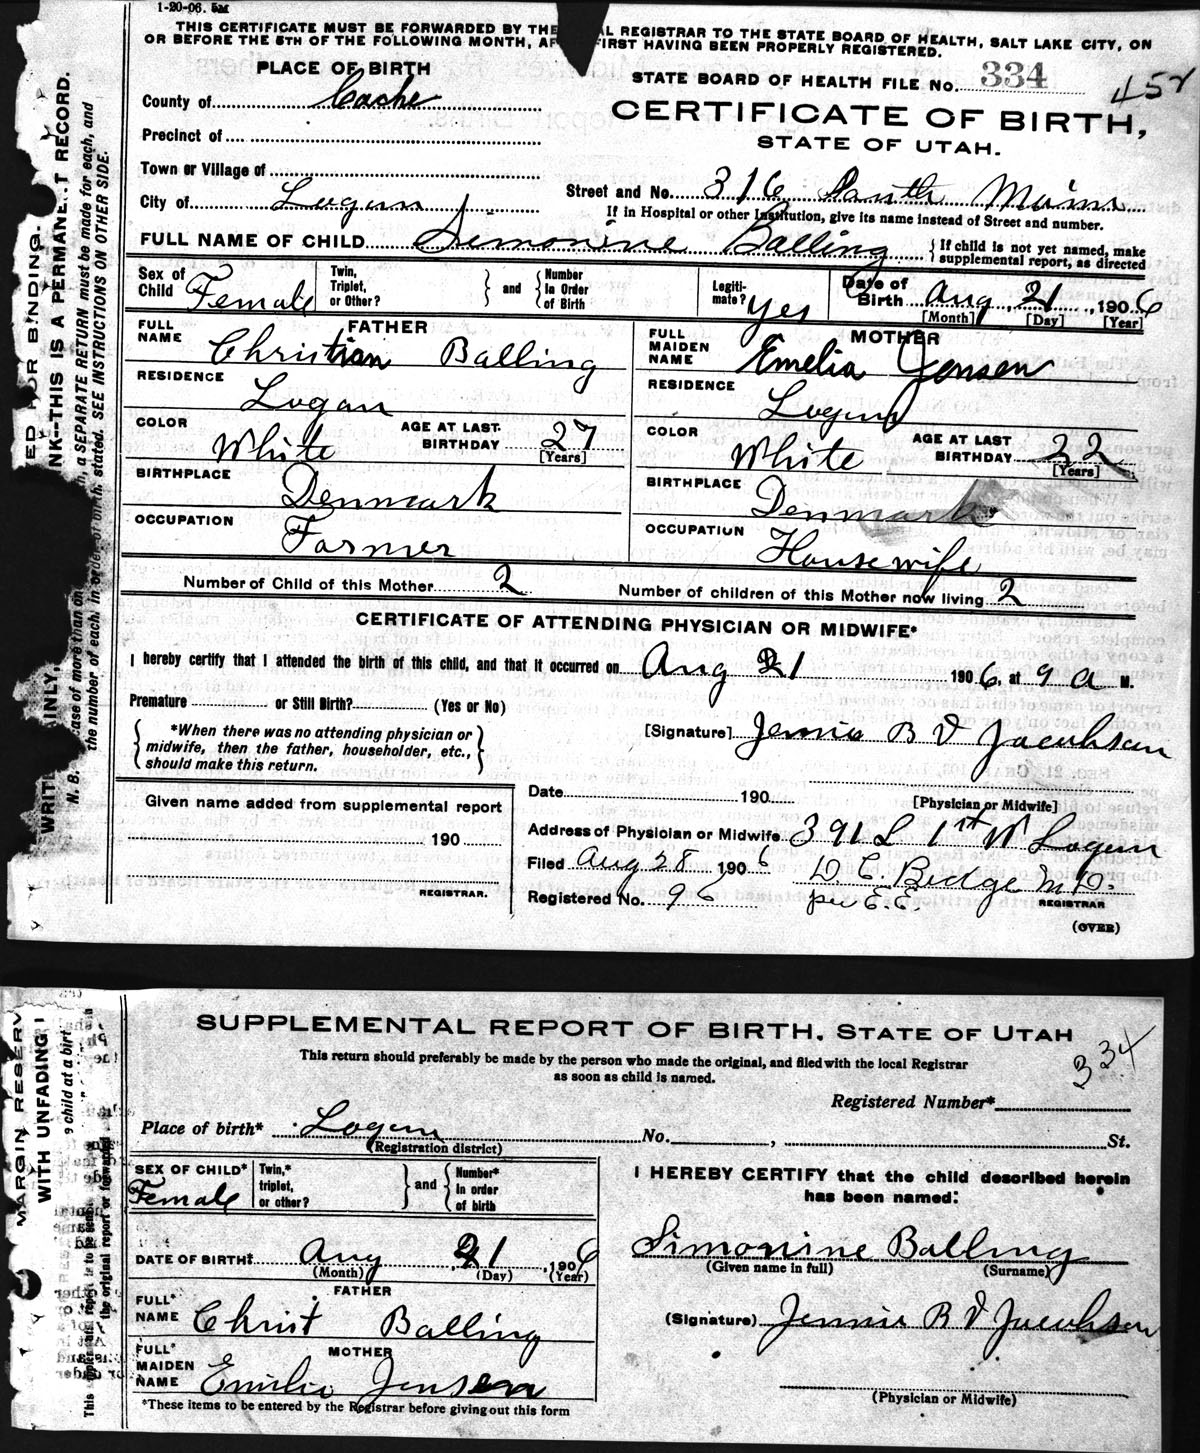 1-20-06. 5M
THIS CERTIFICATE MUST BE FORWARDED BY THE AL REGISTRAR TO THE STATE BOARD OF HEALTH, SALT LAKE CITY, ON
OR BEFORE THE 5TH OF THE FOLLOWING MONTH, AF FIRST HAVING BEEN PROPERLY REGISTERED.
PLACE OF BIRTH
STATE BOARD OF HEALTH FILE No. 334
457
County of Cache
CERTIFICATE OF BIRTH,
STATE OF UTAH.
Precinct of
Town or Village of
City of Logan
Street and No. 316 South Main
If in Hospital or other Institution, give its name instead of Street and number.
FULL NAME OF CHILD Simonine Balling { If child is not yet named, make supplemental report, as directed
Sex of Child Female
Twin, Triplet, or Other? } and { Number In Order of Birth
Legiti-mate? Yes
Date of Birth Aug 21, 1906
[Month] [Day] [Year]
FATHER
FULL NAME Christian Balling
RESIDENCE Logan
COLOR White AGE AT LAST BIRTHDAY 27 [Years]
BIRTHPLACE Denmark
OCCUPATION Farmer
MOTHER
FULL MAIDEN NAME Emelia Jensen
RESIDENCE Logan
COLOR White AGE AT LAST BIRTHDAY 22 [Years]
BIRTHPLACE Denmark
OCCUPATION Housewife
Number of Child of this Mother 2 Number of children of this Mother now living 2
CERTIFICATE OF ATTENDING PHYSICIAN OR MIDWIFE*
I hereby certify that I attended the birth of this child, and that it occurred on Aug 21 1906, at 9 a M.
Premature or Still Birth? (Yes or No)
{ *When there was no attending physician or midwife, then the father, householder, etc., should make this return. }
[Signature] Jennie B V Jacobson
[Physician or Midwife]
Given name added from supplemental report
190
REGISTRAR.
Date 190
Address of Physician or Midwife 391 S 1st W Logan
Filed Aug 28 1906 D. C. Budge M.D.
Registered No. 96 per E.E. REGISTRAR
(OVER)
ED FOR BINDING.
NK--THIS IS A PERMANENT RECORD.
INLY,
WRIT
N. B. case of more than on , a SEPARATE RETURN must be made for each, and
the number of each, in order of birth, stated. SEE INSTRUCTIONS ON OTHER SIDE.
SUPPLEMENTAL REPORT OF BIRTH. STATE OF UTAH
This return should preferably be made by the person who made the original, and filed with the local Registrar
as soon as child is named.
334
Registered Number*
Place of birth* Logan No. , St.
(Registration district)
SEX OF CHILD* Female
Twin,* triplet, or other? } and { Number* in order of birth
DATE OF BIRTH* Aug 21, 1906
(Month) (Day) (Year)
FATHER
FULL* NAME Christ Balling
MOTHER
FULL* MAIDEN NAME Emilia Jensen
*These items to be entered by the Registrar before giving out this form
I HEREBY CERTIFY that the child described herein
has been named:
Simonine Balling
(Given name in full) (Surname)
(Signature) Jennie B V Jacobson
(Physician or Midwife)
MARGIN RESERV
WITH UNFADING I
e child at a birth
the original report or forwarded